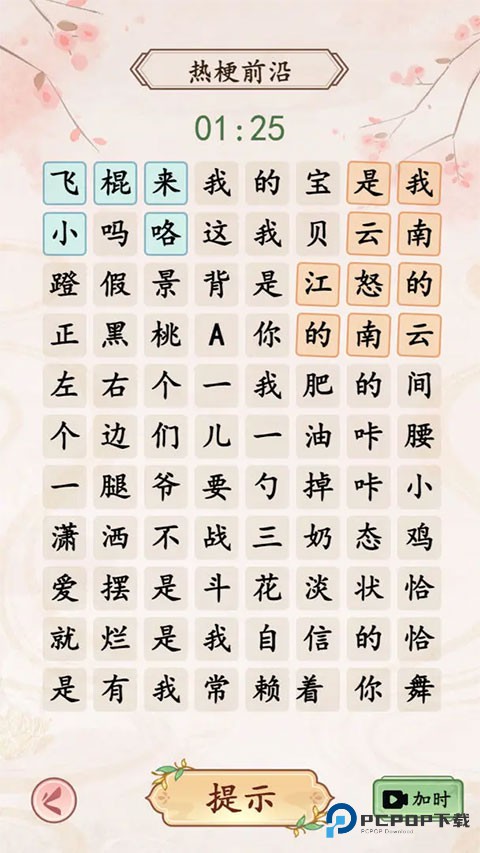 热梗前沿
01:25
飞棍来我的宝是我
小吗咯这我贝云南
蹬假景背是江怒的
正黑桃A你的南云
左右个一我肥的间
个边们儿一油咔腰
一腿爷要勺掉咔小
潇洒不战三奶态鸡
爱摆是斗花淡状恰
就烂是我自信的恰
是有我常赖着你舞
提示
加时
PCPOP下载
PCPOP Download